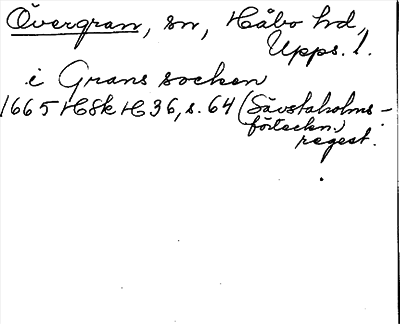 Övergran, sn, Håbo hd,
Upps. l.
i Grans socken
1665 HSk H 36, s. 64 (Sävstaholms-
förteckn.)
regest.